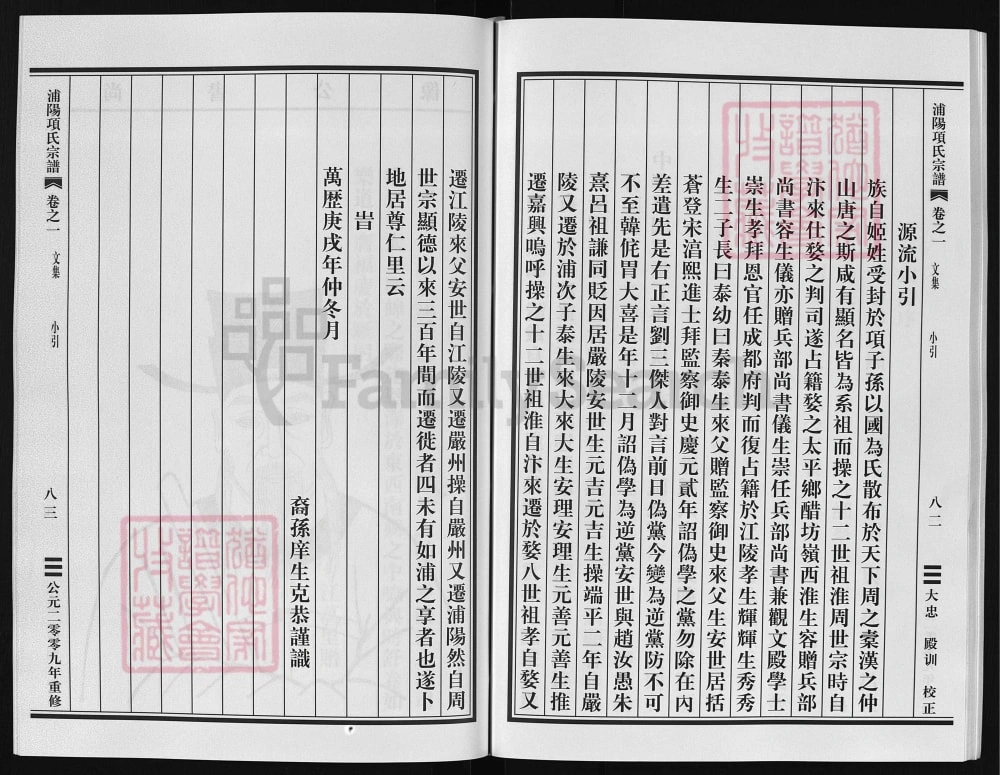 浦陽項氏宗譜 卷之一 文集 小引 八二 大忠 殿训 校正
源流小引
族自姬姓受封於項子孫以國為氏散布於天下周之橐漢之仲
山唐之斯咸有顯名皆為系祖而操之十二世祖淮周世宗時自
汴來仕婺之判司遂占籍婺之太平鄉醋坊嶺西淮生容贈兵部
尚書容生儀亦贈兵部尚書儀生崇任兵部尚書兼觀文殿學士
崇生孝拜恩官任成都府判而復占籍於江陵孝生輝輝生秀秀
生二子長曰泰幼曰秦泰生來父贈監察御史來父生安世居括
蒼登宋淐熙進士拜監察御史慶元貳年詔偽學之黨勿除在內
差遣先是右正言劉三傑人對言前日偽黨今變為逆黨防不可
不至韓侂胄大喜是年十二月詔偽學為逆黨安世與趙汝愚朱
熹呂祖謙同貶因居嚴陵安世生元吉元吉生操端平二年自嚴
陵又遷於浦次子泰生來大來大生安理安理生元善元善生推
遷嘉興嗚呼操之十二世祖淮自汴來遷於婺八世祖孝自婺又
遷江陵來父安世自江陵又遷嚴州操自嚴州又遷浦陽然自周
世宗顯德以來三百年間而遷徙者四未有如浦之享者也遂卜
地居尊仁里云
旹
萬歷庚戌年仲冬月
裔孫庠生克恭謹識
浦陽項氏宗譜 卷之一 文集 小引 八三 公元二零零九年重修
FamilySearch